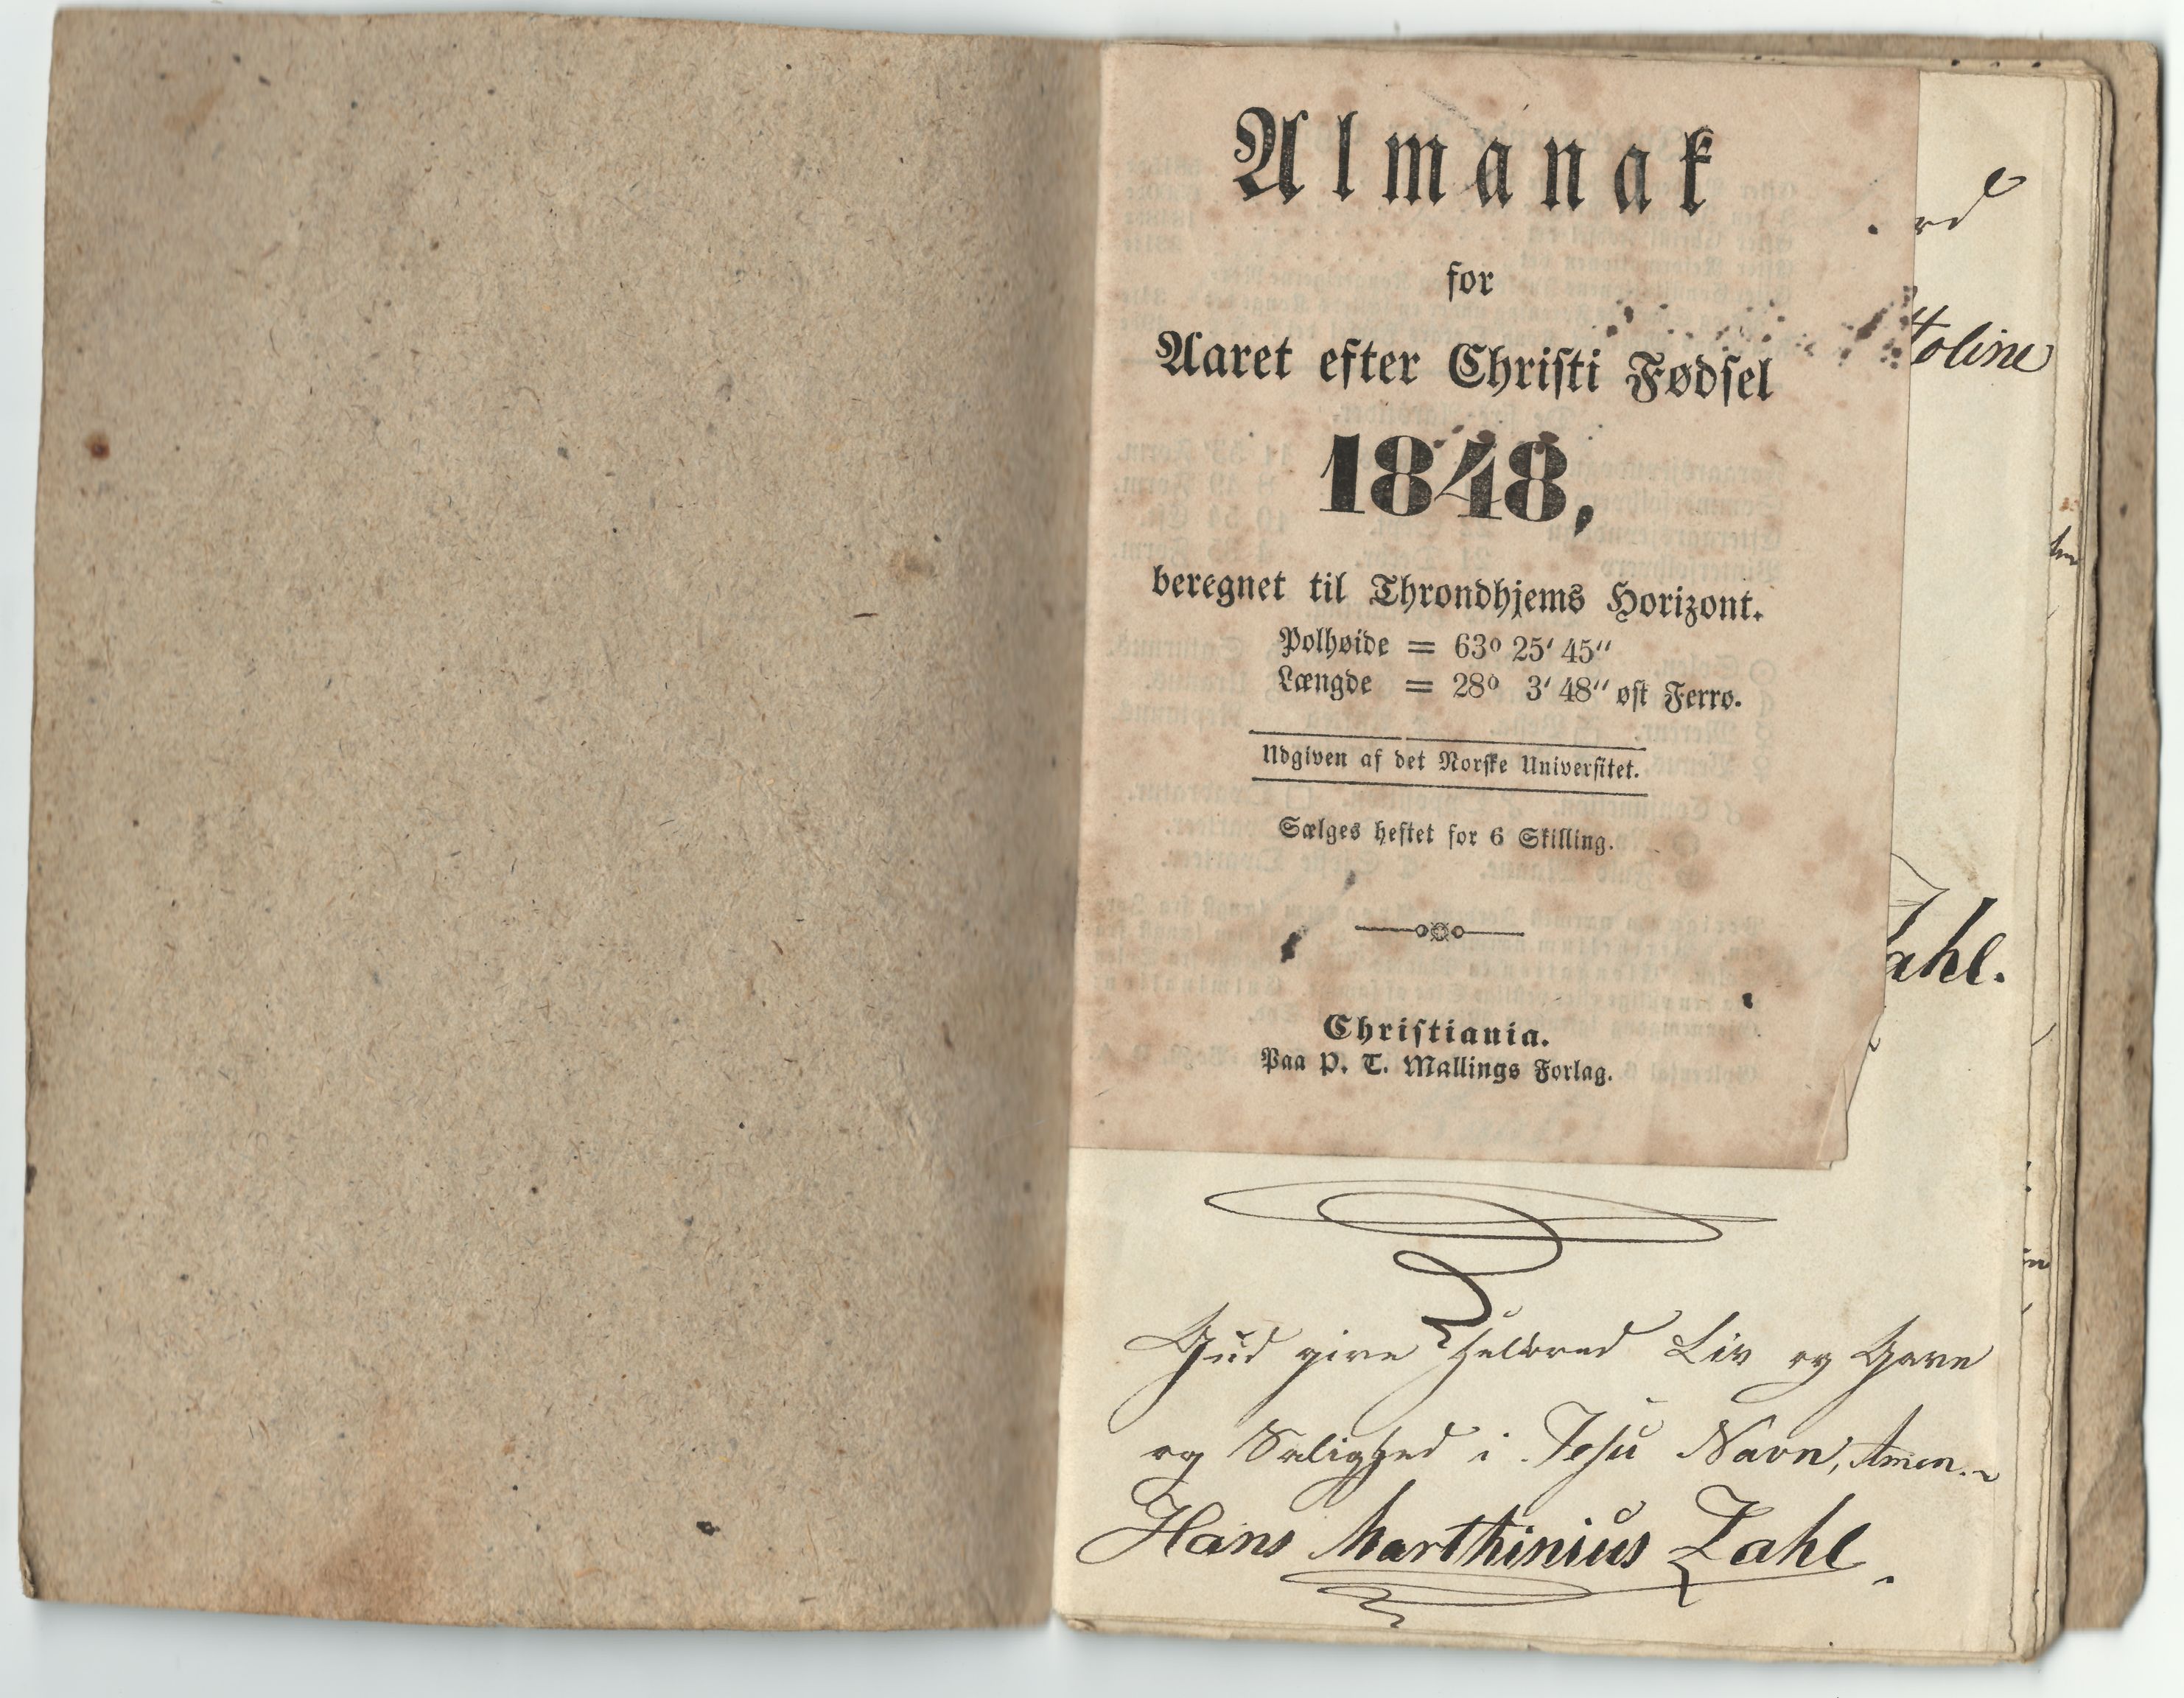 Almanak
for
Aaret efter Christi Fødsel
1848,
beregnet til Throndhjems Horizont.
Polhøide = 63° 25' 45"
Længde = 28° 3' 48" øst Ferro.
Udgiven af det Norske Universitet.
Sælges heftet for 6 Skilling.
Christiania.
Paa P. T. Mallings Forlag.
rd
toline
ahl.
Gud give Helbred Liv og Gavn
og Salighed i Jesu Navn, Amen.
Hans Marthinius Zahl.